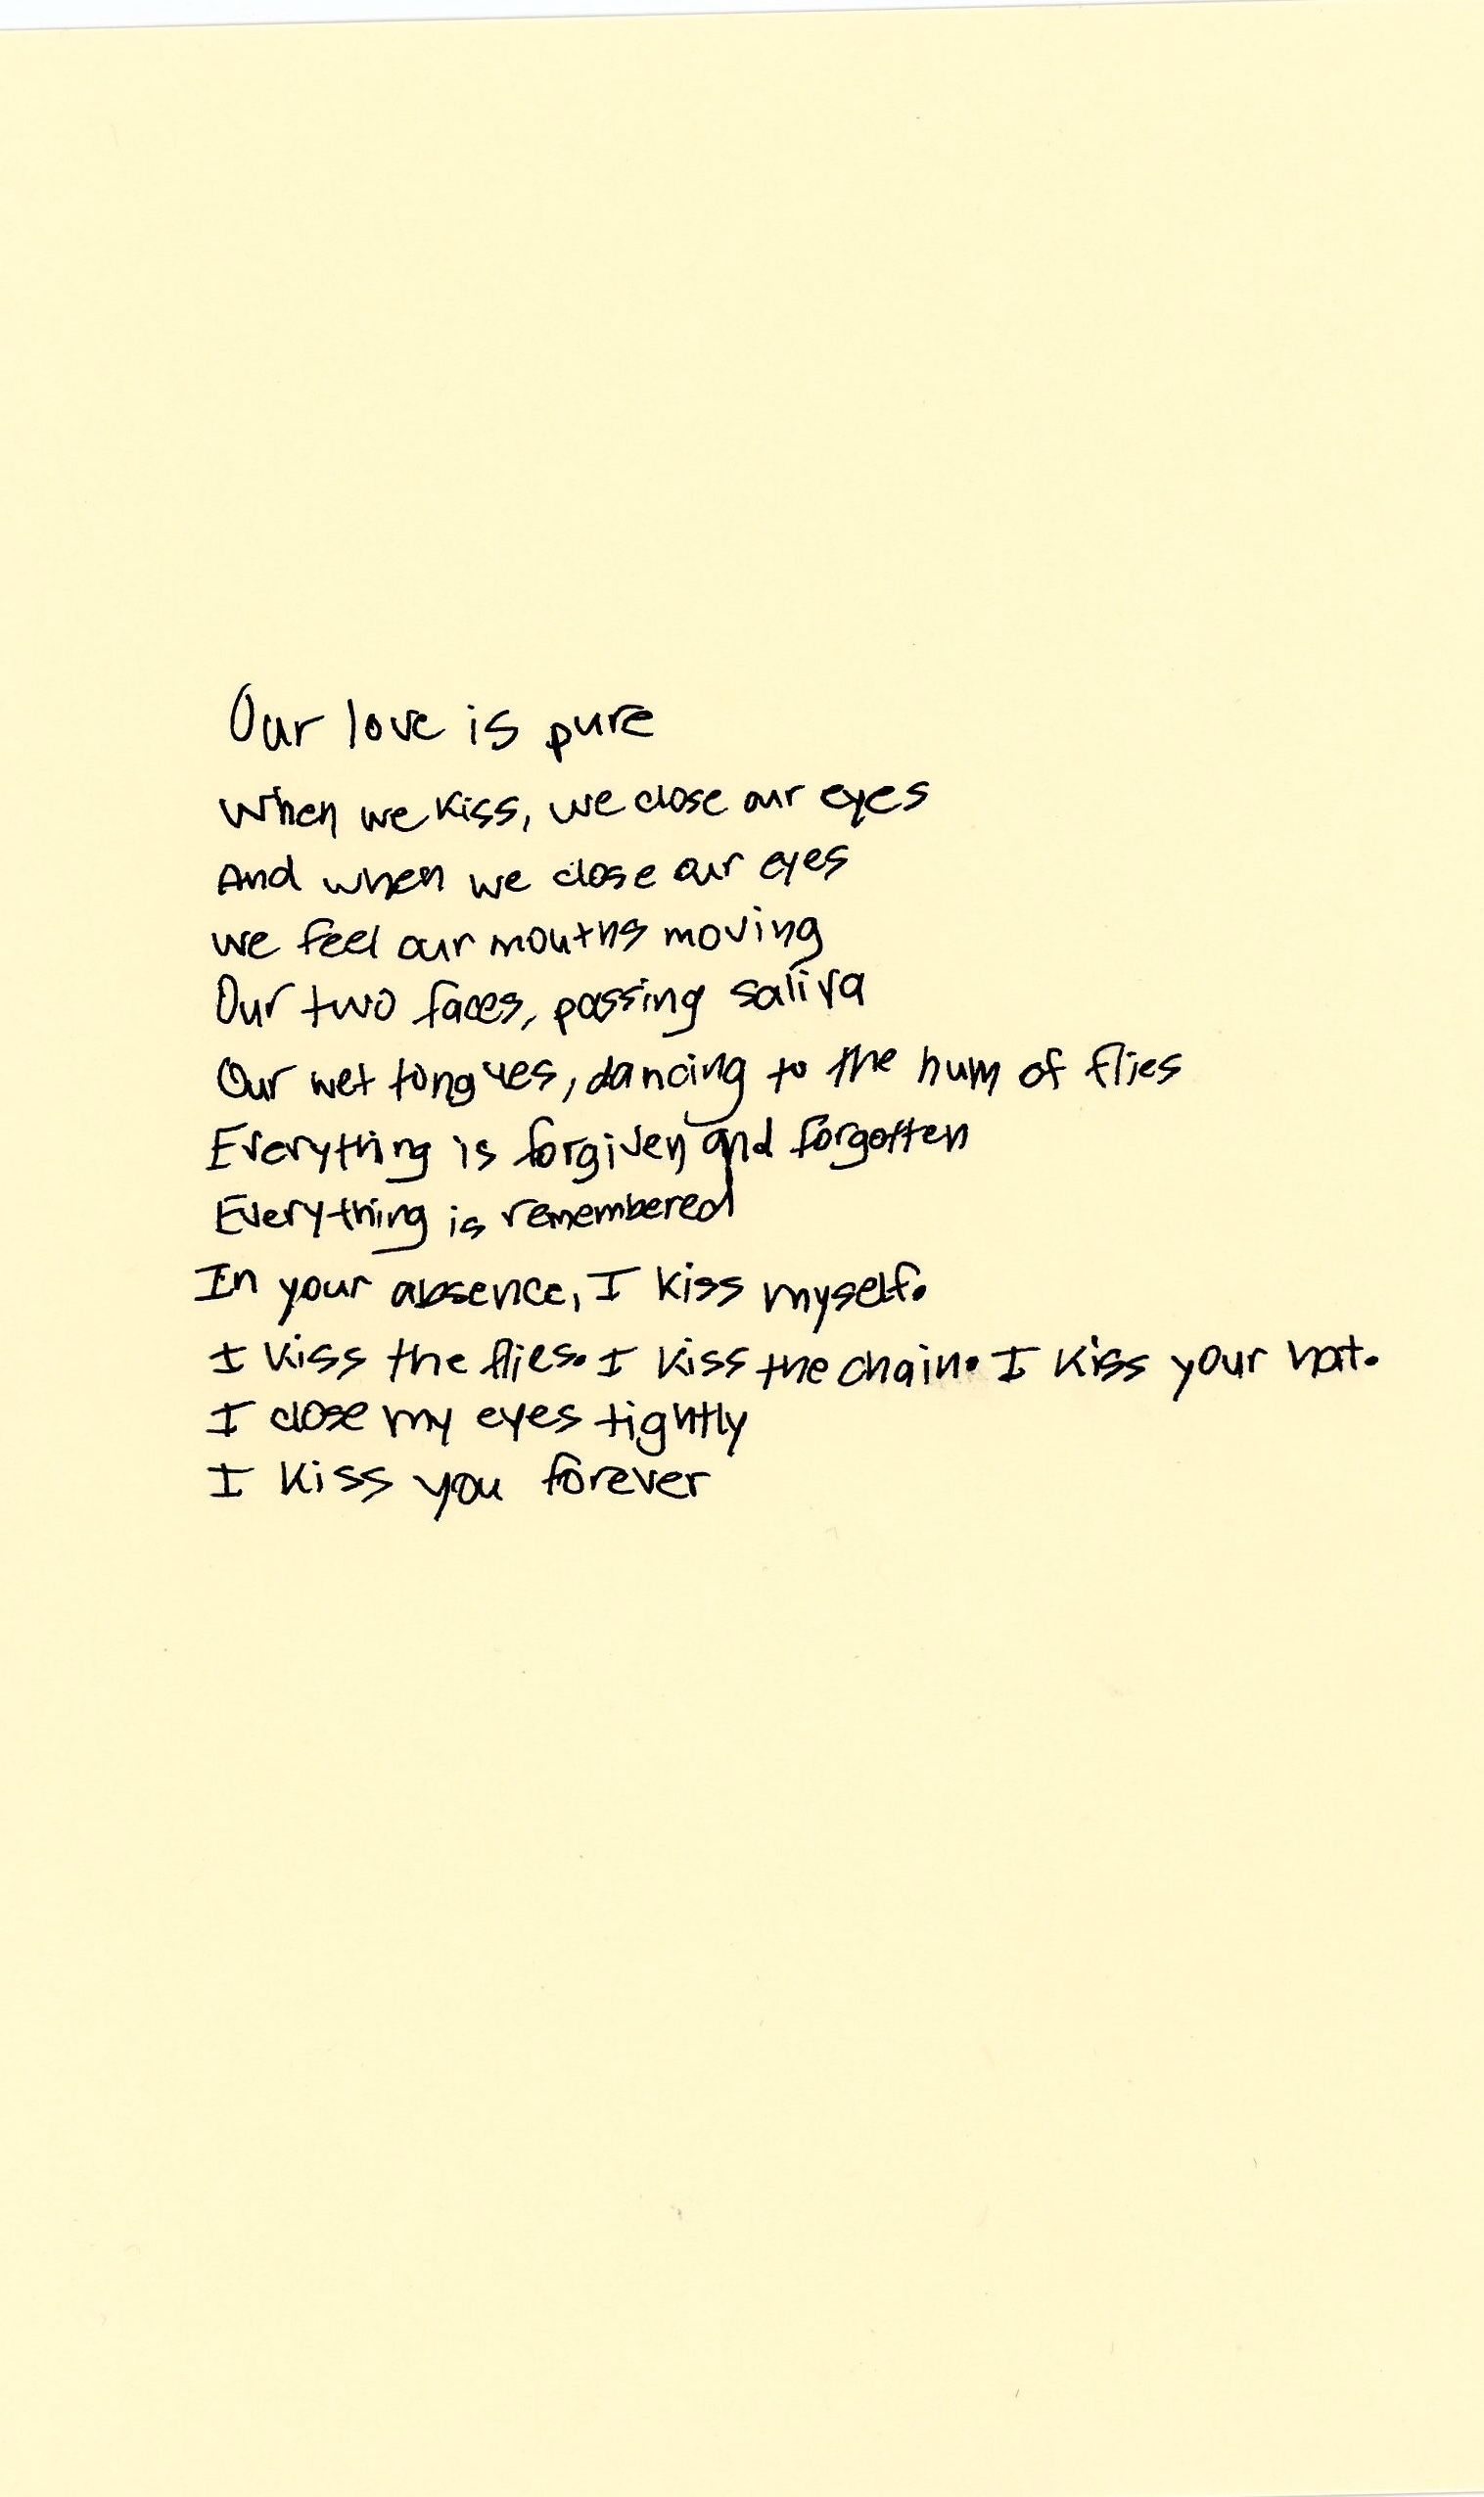 Our love is pure
When we kiss, we close our eyes
And when we close our eyes
we feel our mouths moving
Our two faces, passing saliva
Our wet tongues, dancing to the hum of flies
Everything is forgiven and forgotten
Everything is remembered
In your absence, I kiss myself.
I kiss the flies. I kiss the chain. I kiss your hat.
I close my eyes tightly
I kiss you forever